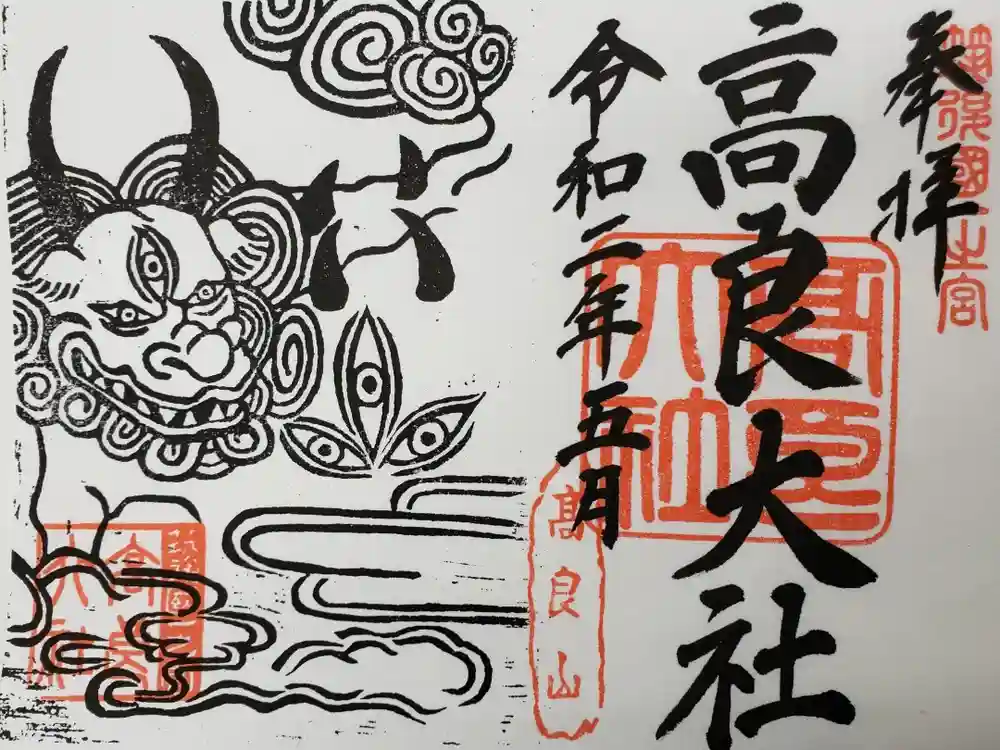 筑後國一之宮
奉拝
高良大社
高良大社
令和二年五月
髙良山
高良大社